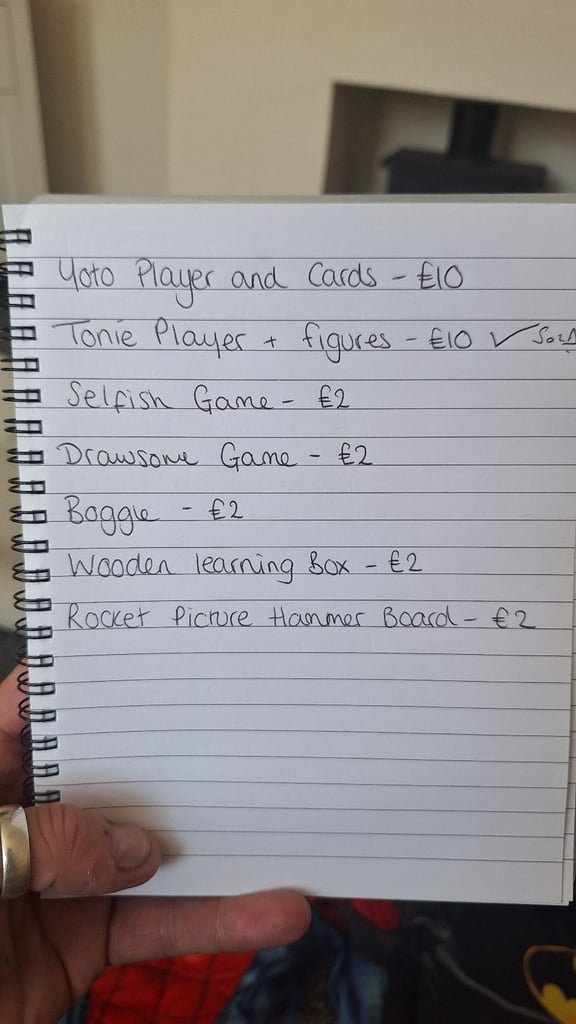 Yoto Player and Cards - £10
Tonie Player + figures - £10 ✓ Sold
Selfish Game - £2
Drawsome Game - £2
Boggle - £2
Wooden learning Box - £2
Rocket Picture Hammer Board - £2